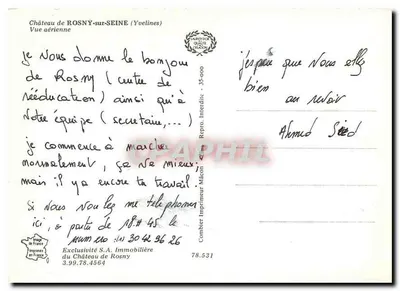 Château de ROSNY-sur-SEINE (Yvelines)
Vue aérienne
je vous donne le bonjour
de Rosny (centre de
rééducation) ainsi qu'à
votre équipe (secretaire,...)
je commence à marcher
normalement, ça va mieux
mais il y a encore du travail.
Si vous voulez me telephoner
ici, à partir de 18H45 le
numero 30 42 96 26
Exclusivité S.A. Immobilière
du Château de Rosny
3.99.78.4564
78.531
Combier Imprimeur Mâcon
Repro. Interdite - 35-000
j'espère que vous allez
bien
au revoir
Ahmed